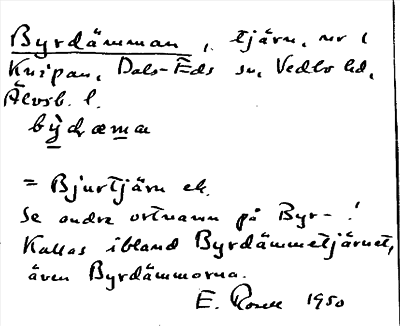 Byrdämman, tjärn, nr 1
Knipan, Dals-Eds sn, Vedbo hd,
Älvsb. l.
bỳdræmaɩ
= Bjurtjärn ek.
Se andra ortnamn på Byr- !
Kallas ibland Byrdämmetjärnet,
även Byrdämmorna.
E. Rosell 1950